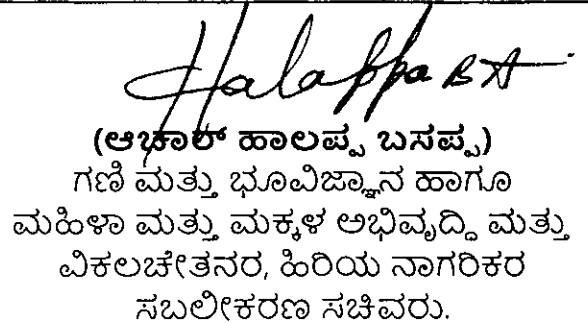 Halappa B A
(ಆಚಾರ್ ಹಾಲಪ್ಪ ಬಸಪ್ಪ)
ಗಣಿ ಮತ್ತು ಭೂವಿಜ್ಞಾನ ಹಾಗೂ
ಮಹಿಳಾ ಮತ್ತು ಮಕ್ಕಳ ಅಭಿವೃದ್ಧಿ ಮತ್ತು
ವಿಕಲಚೇತನರ, ಹಿರಿಯ ನಾಗರಿಕರ
ಸಬಲೀಕರಣ ಸಚಿವರು.